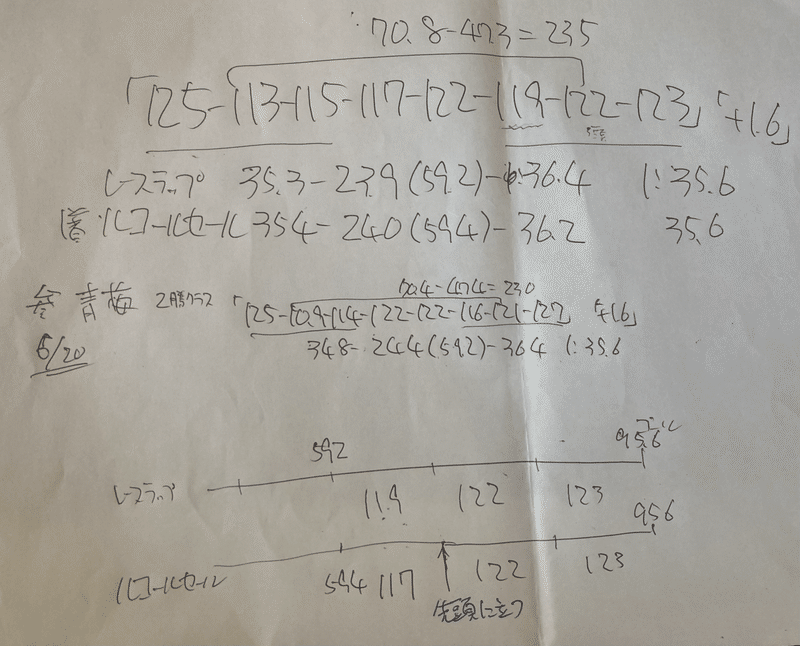 70.8-47.3=23.5
「12.5-11.3-11.5-11.7-12.2-11.9-12.2-12.3」「+1.6」
レースラップ 35.3-23.9(59.2)-36.4 1:35.6
1着ルコールセール 35.4-24.0(59.4)-36.2 35.6
参 青梅 2勝クラス
5/20
70.4-47.4=23.0
「12.5-10.9-11.4-12.2-12.2-11.6-12.1-12.7」「+1.6」
34.8-24.4(59.2)-36.4 1:35.6
59.2 ゴール 95.6
レースラップ 11.9 12.2 12.3
95.6
ルコールセール 59.4 11.7 12.2 12.3
先頭に立つ